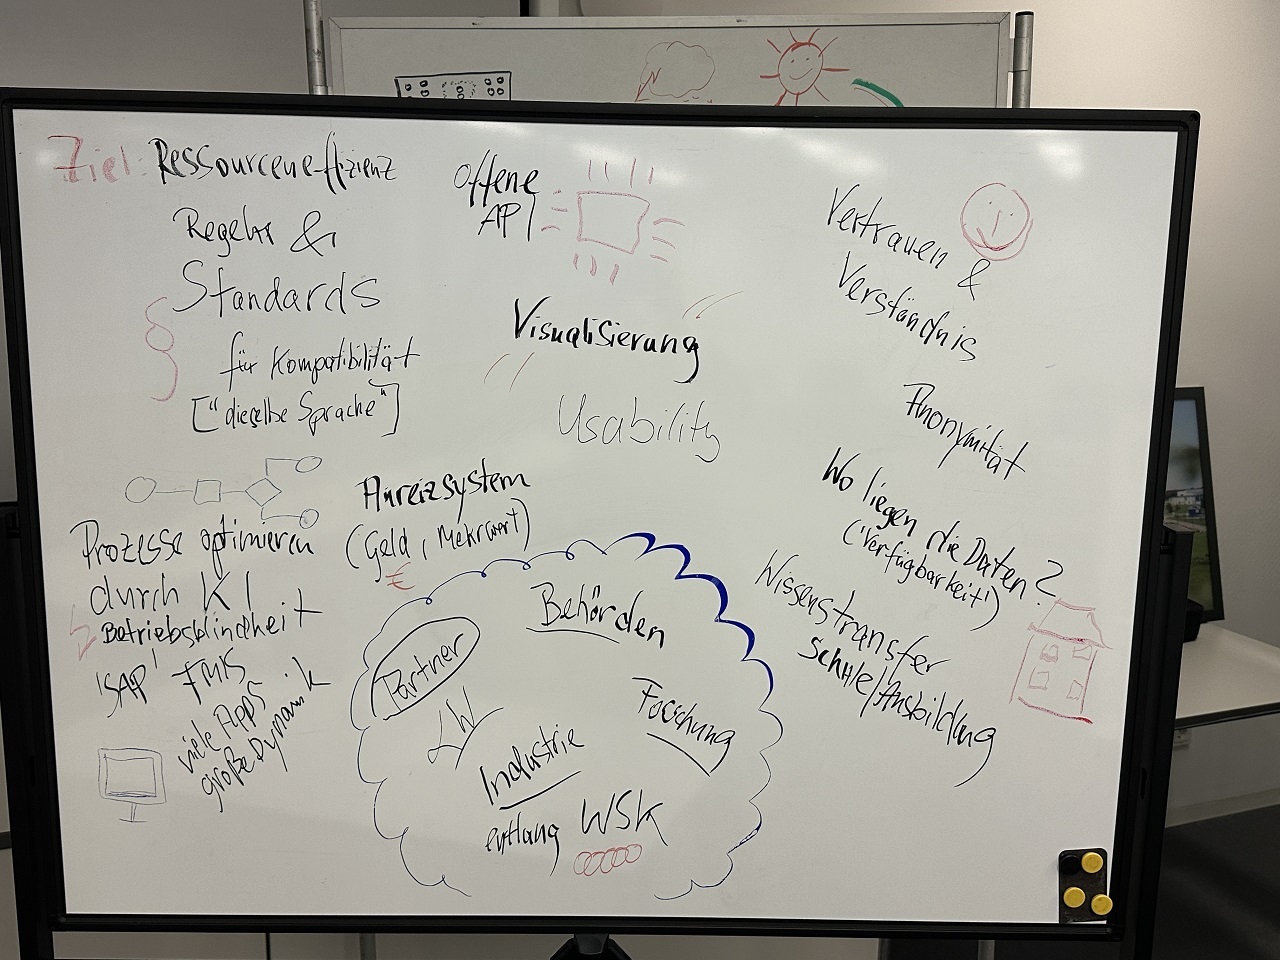 Ziel: Ressourceneffizienz
Regeln &
Standards
§
für Kompatibilität
["dieselbe Sprache"]
Prozesse optimieren
durch KI
Betriebsblindheit
'SAP' FMIS
viele Apps
große Dynamik
offene
API
Visualisierung
Usability
Anreizsystem
(Geld, Mehrwert)
€
Partner
Behörden
LW
Forschung
Industrie
entlang WSK
Vertrauen &
Verständnis
Anonymität
Wo liegen die Daten?
('Verfügbarkeit')
Wissenstransfer
Schule/Ausbildung